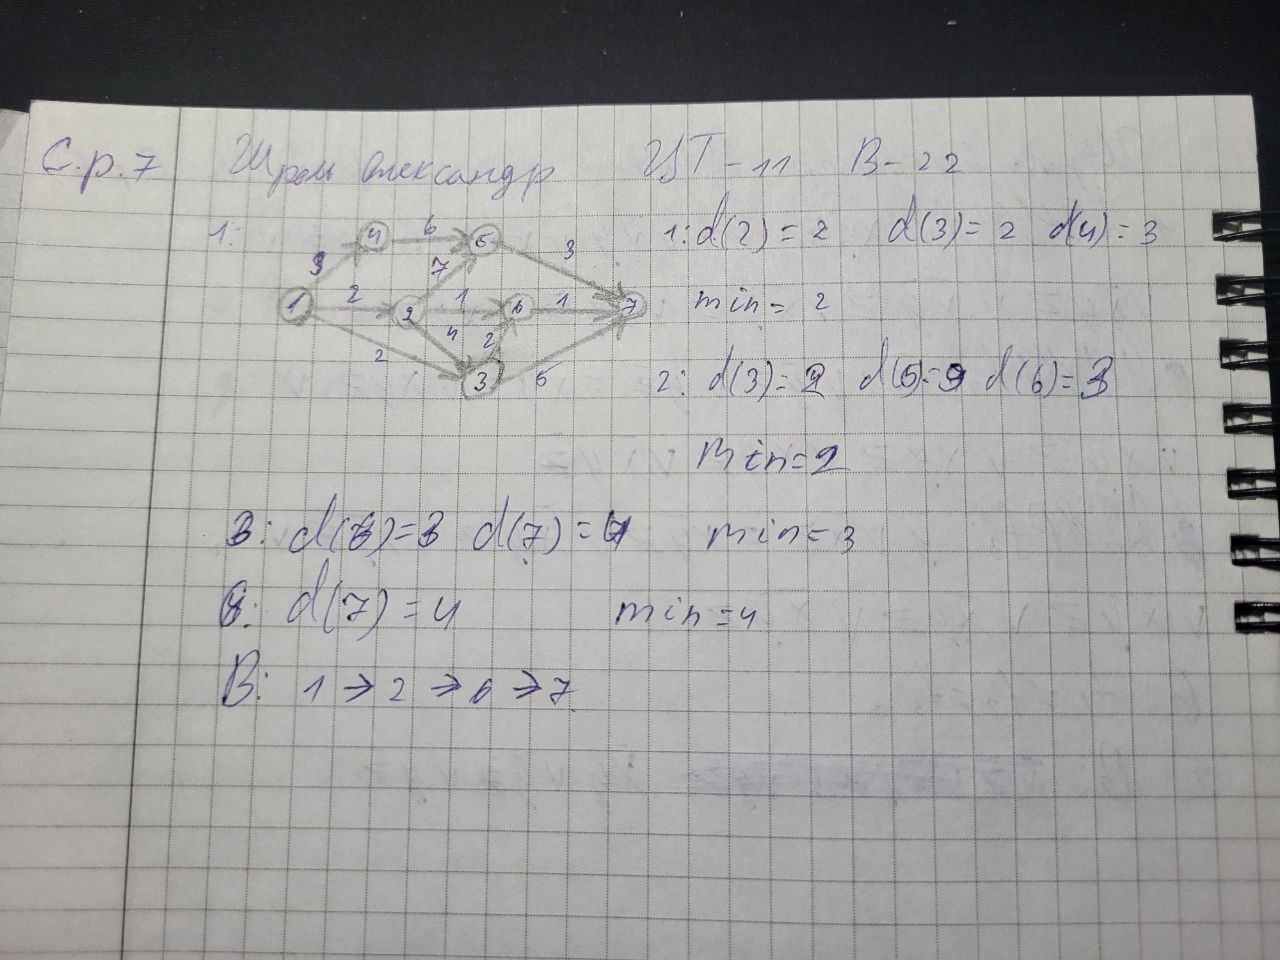 С.р.7 Шрам Олександр ЦТ-11 В-22
1:
4 6 5
3 7 3
1 2 2 1 6 1 7
4 2
2 3 6
1: d(2) = 2 d(3) = 2 d(4) = 3
min = 2
2: d(3) = 2 d(5) = 9 d(6) = 3
min = 2
3: d(6) = 3 d(7) = min = 3
6: d(7) = 4 min = 4
В: 1 → 2 → 6 → 7